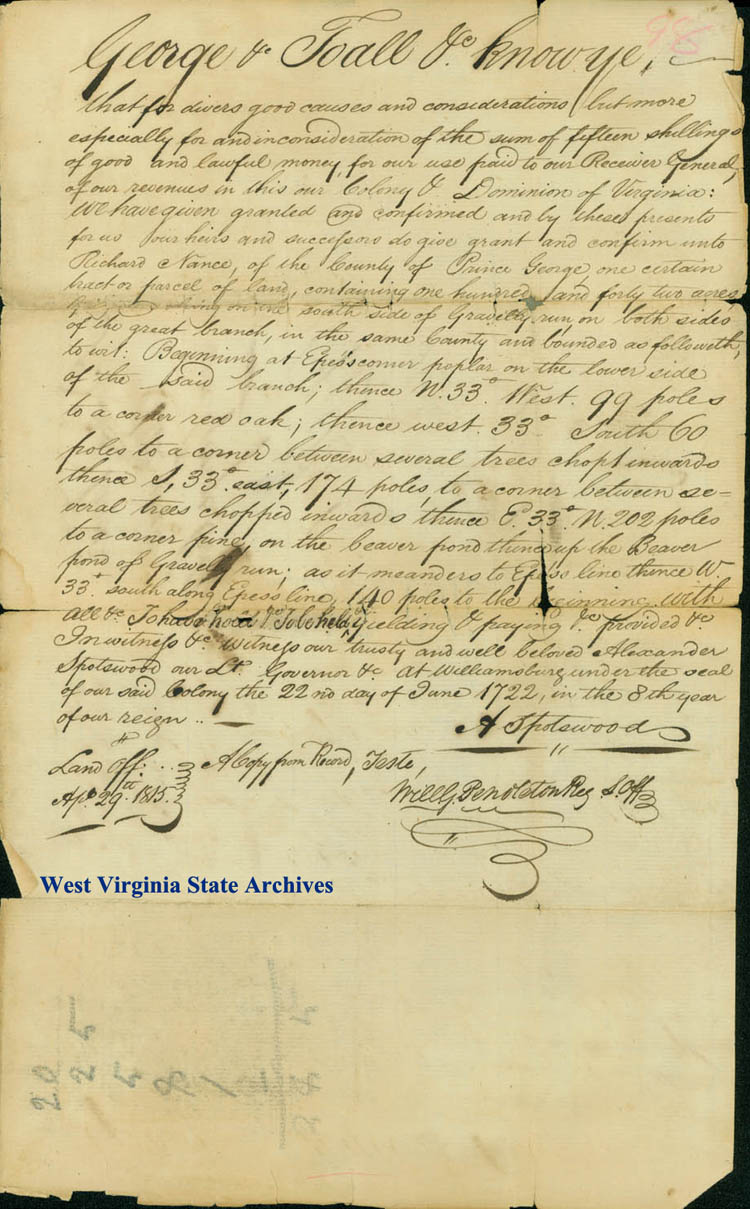 98
George &c To all &c know ye,
that for divers good causes and considerations but more
especially for and in consideration of the sum of fifteen shillings
of good and lawful money, for our use paid to our Receiver General,
of our revenues in this our Colony & Dominion of Virginia:
We have given granted and confirmed and by these presents
for us our heirs and successors do give grant and confirm unto
Richard Nance, of the County of Prince George one certain
tract or parcel of land, containing one hundred and forty two acres
lying on the south side of Gravelly run, on both sides
of the great branch, in the same County and bounded as followeth,
to wit: Beginning at Epes's corner poplar on the lower side
of the said branch; thence N. 33° West. 99 poles
to a corner red oak; thence west. 33° South 60
poles to a corner between several trees chopt inwards
thence S, 33° east, 174 poles, to a corner between se-
veral trees chopped inwards thence E. 33° N. 202 poles
to a corner pine, on the beaver pond thence up the Beaver
pond of Gravelly run; as it meanders to Epes's line thence W
33° south along Epess line, 140 poles to the beginning with
all &c To have hold &c To be held &c yielding & paying &c provided &c
In witness &c witness our trusty and well beloved Alexander
Spotswood our Lt. Governor &c at Williamsburg under the seal
of our said Colony the 22nd day of June 1722, in the 8th year
of our reign ..
A Spotswood
Land Off: .. A Copy from Record, Teste,
Apl 29th 1815. Will G. Pendleton Reg L. Off
West Virginia State Archives